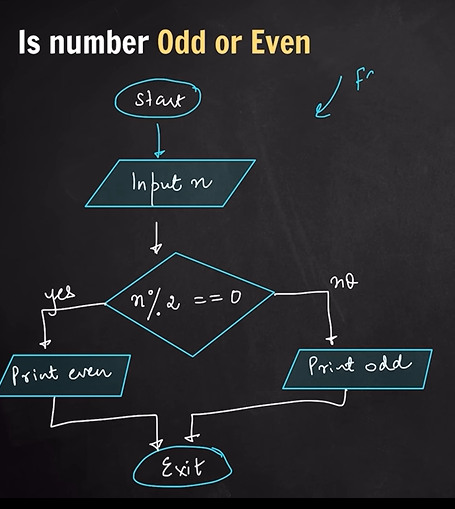 Is number Odd or Even
Start
Input n
n % 2 == 0
yes
no
Print even
Print odd
Exit